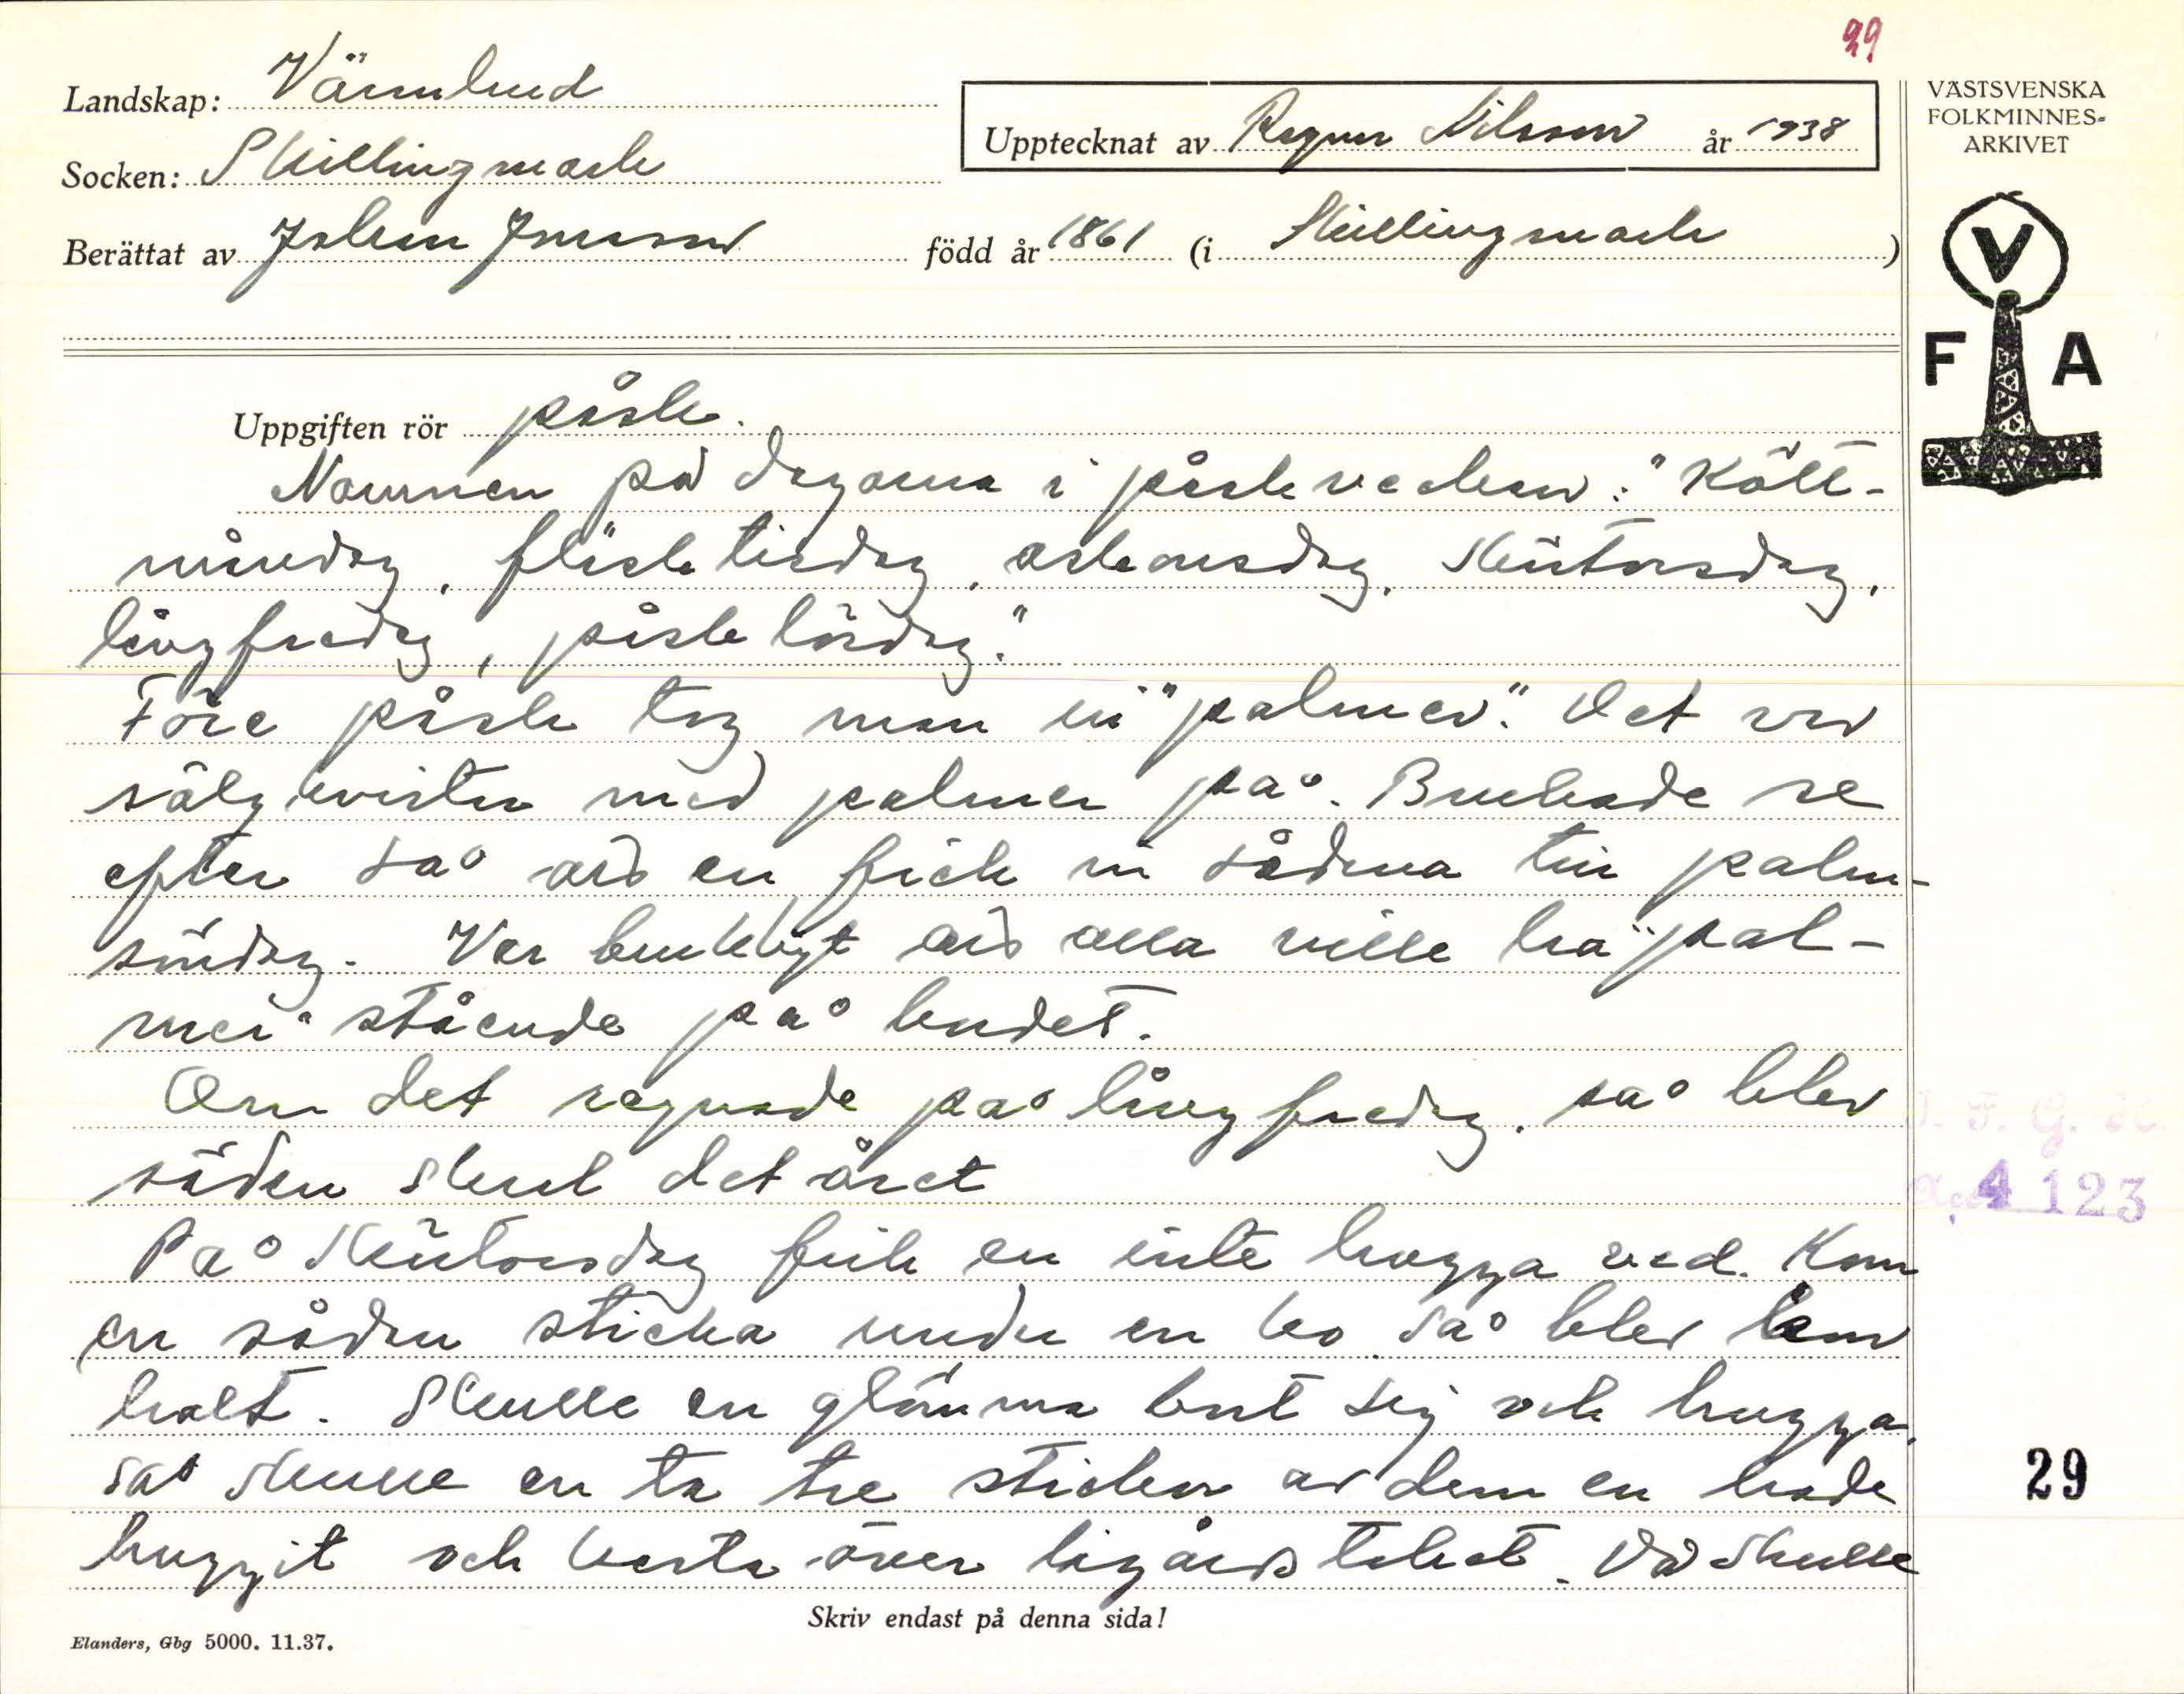 29
Landskap: Värmland
Socken: Skillingmark
Upptecknat av Ragnar Nilsson år 1938
Berättat av Johan Jonsson född år 1861 (i Skillingmark)
VÄSTSVENSKA
FOLKMINNES-
ARKIVET
V
F A
Uppgiften rör påsk.
Namnen på dagarna i påskveckan: "Kött-
måndag, fläsktisdag, askonsdag, skärtorsdag,
långfredag, påsklördag."
Före påsk tog man in "palmer". Det var
sälgkvistar med palmer på. Brukade se
efter så att en fick in sådana till palm-
söndag. Var brukligt att alla ville ha "pal-
mer" stående på bordet.
Om det regnade på långfredag, så blev
säden skral det året
På skärtorsdag fick en inte hugga ved. Kom
en sådan sticka under en ko så blev den
halt. Skulle en glömma bort sig och hugga,
så skulle en ta tre stickor av dem en hade
huggit och kasta över lagårdstaket. Då skulle
I. F. G. H.
Acc. 4123
29
Skriv endast på denna sida!
Elanders, Gbg 5000. 11.37.